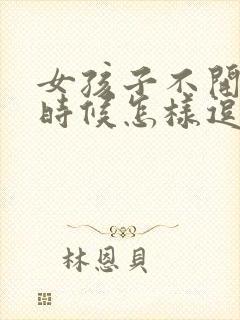 女孩子不
時候怎樣
林恩貝